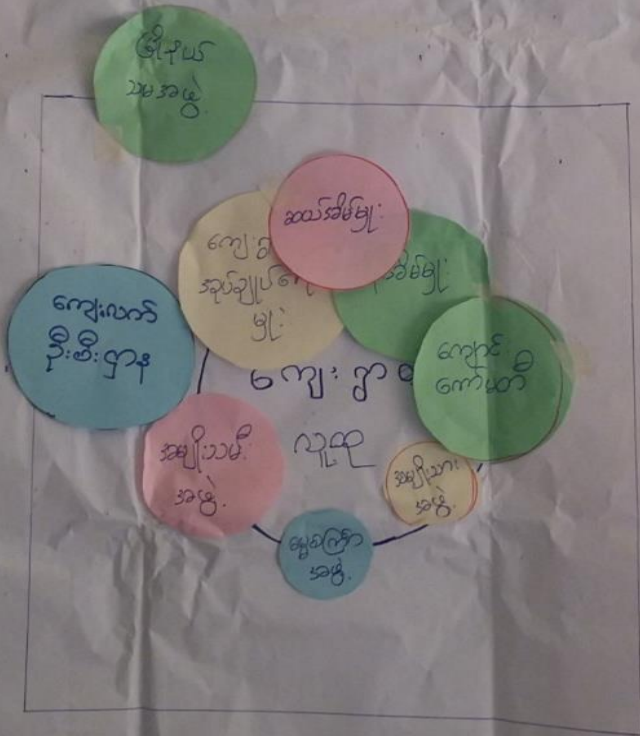 မြို့နယ်
သမအဖွဲ့
ဆယ်အိမ်မှူး
ကျေးရွာ
အုပ်ချုပ်ရေး
မှူး
အိမ်မှူး
ကျေးလက်
ဦးစီးဌာန
ကျောင်း
ကော်မတီ
ကျေးရွာ
လူထု
အမျိုးသမီး
အဖွဲ့
အမျိုးသား
အဖွဲ့
အဖွဲ့